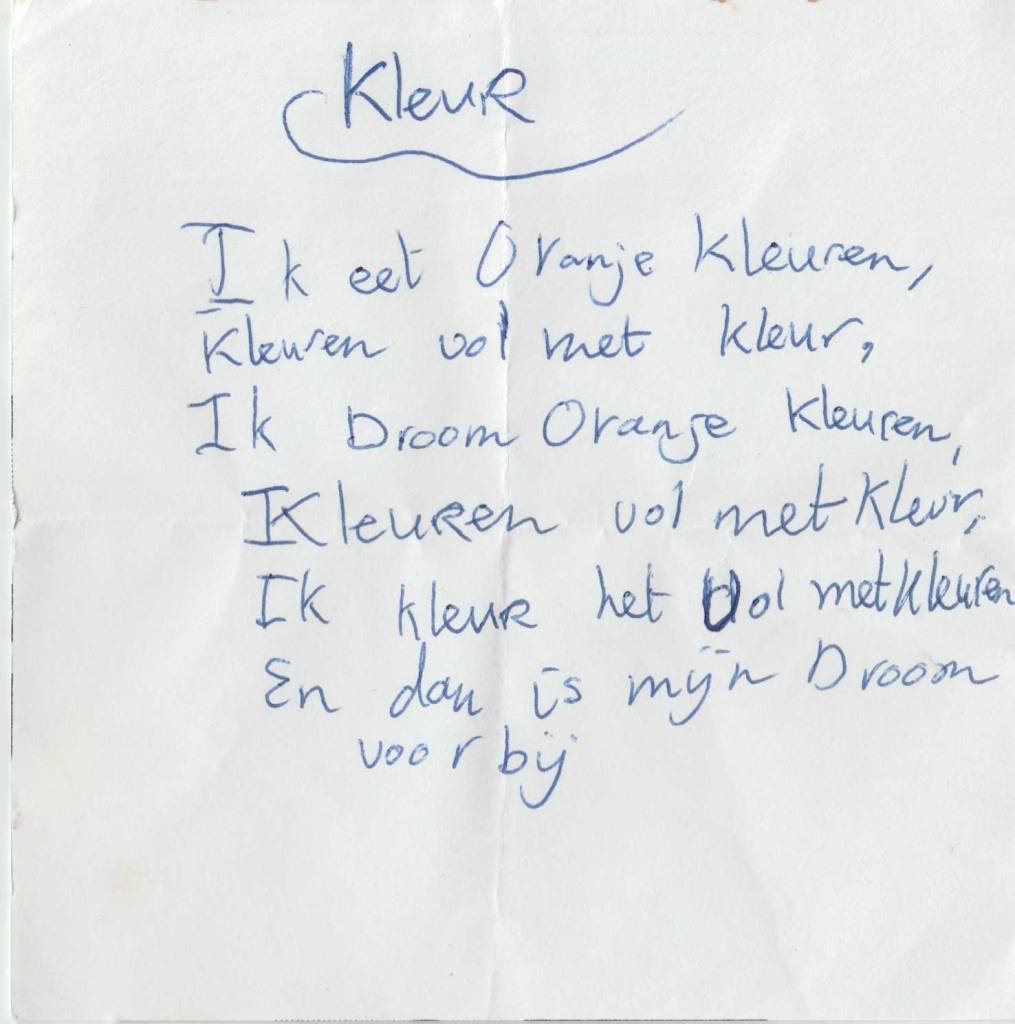 Kleur
Ik eet Oranje kleuren,
kleuren vol met kleur,
Ik Droom Oranje kleuren,
Kleuren vol met kleur,
Ik kleur het vol met kleuren
En dan is mijn Droom
voorbij